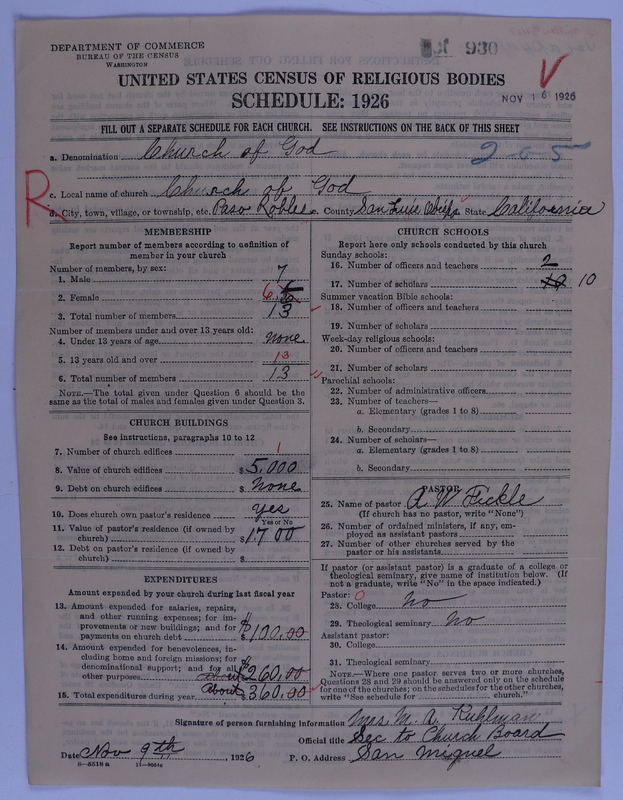 DEPARTMENT OF COMMERCE
BUREAU OF THE CENSUS
WASHINGTON
930
UNITED STATES CENSUS OF RELIGIOUS BODIES
SCHEDULE: 1926
NOV 16 1926
FILL OUT A SEPARATE SCHEDULE FOR EACH CHURCH. SEE INSTRUCTIONS ON THE BACK OF THIS SHEET
a. Denomination Church of God
265
c. Local name of church Church of God
R
d. City, town, village, or township, etc. Paso Robles e. County San Luis Obispo State California
MEMBERSHIP
Report number of members according to definition of
member in your church
Number of members, by sex:
1. Male 7
2. Female 6
3. Total number of members 13
Number of members under and over 13 years old:
4. Under 13 years of age none
5. 13 years old and over 13
6. Total number of members 13
NOTE.—The total given under Question 6 should be
same as the total of males and females given under Question 3.
CHURCH BUILDINGS
See instructions, paragraphs 10 to 12
7. Number of church edifices 1
8. Value of church edifices $ 5,000
9. Debt on church edifices $ none
10. Does church own pastor's residence yes
Yes or No
11. Value of pastor's residence (if owned by
church) $ 1700
12. Debt on pastor's residence (if owned by
church) $
EXPENDITURES
Amount expended by your church during last fiscal year
13. Amount expended for salaries, repairs,
and other running expenses; for im-
provements or new buildings; and for
payments on church debt $ 100.00
14. Amount expended for benevolences, in-
cluding home and foreign missions; for
denominational support; and for all
other purposes about $ 260.00
15. Total expenditures during year about $ 360.00
CHURCH SCHOOLS
Report here only schools conducted by this church
Sunday schools:
16. Number of officers and teachers 2
17. Number of scholars 10
Summer vacation Bible schools:
18. Number of officers and teachers
19. Number of scholars
Week-day religious schools:
20. Number of officers and teachers
21. Number of scholars
Parochial schools:
22. Number of administrative officers
23. Number of teachers—
a. Elementary (grades 1 to 8)
b. Secondary
24. Number of scholars—
a. Elementary (grades 1 to 8)
b. Secondary
PASTOR
25. Name of pastor A W Fickle
(If church has no pastor, write "None")
26. Number of ordained ministers, if any, em-
ployed as assistant pastors
27. Number of other churches served by the
pastor or his assistants
If pastor (or assistant pastor) is a graduate of a college or
theological seminary, give name of institution below. (If
not a graduate, write "No" in the space indicated.)
Pastor: 0
28. College No
29. Theological seminary No
Assistant pastor:
30. College
31. Theological seminary
NOTE.—Where one pastor serves two or more churches,
Questions 28 and 29 should be answered only on the schedule
for one of the churches; on the schedules for the other churches,
write "See schedule for church."
Signature of person furnishing information Mrs M. A. Ruhlman
Official title Sec to Church Board
Date Nov 9th, 1926 P. O. Address San Miguel
8—5518 a